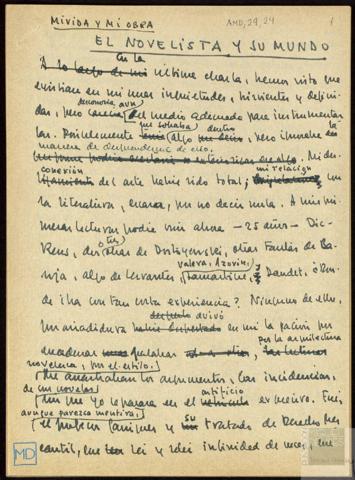 MI VIDA Y MI OBRA
AMD, 29, 24
1
EL NOVELISTA Y SU MUNDO
En la
última charla, hemos visto que
existían en mi unas inquietudes, hirvientes y defini-
das, pero aun del medio adecuado para instrumentar-
las. Posiblemente que soñaba algo dentro, pero ignoraba la
manera de desprenderme de ello. Mi des-
conexión del arte había sido total; mi relación con
la literatura, escasa, por no decir nula. A mis
meras lecturas podía unir ahora —25 años— Dic-
kens, dos obras de Dostoyewski, otras tantas de Ba-
roja, algo de Cervantes, Valera, Azorín, Lamartine, Daudet. ¿Dón-
de iba con tan corta experiencia? Ninguno de ellos,
por añadidura avivó en mi la pasión por
encadenar palabras por la arquitectura
novelesca, por el estilo.
Me arrastraban los argumentos, las incidencias
de sus novelas
sin que yo reparara en el artificio externo. Fui,
aunque parezca mentira,
el profesor Garrigues y su tratado de Derecho Mer-
cantil, que leí y releí infinidad de veces, que
MD